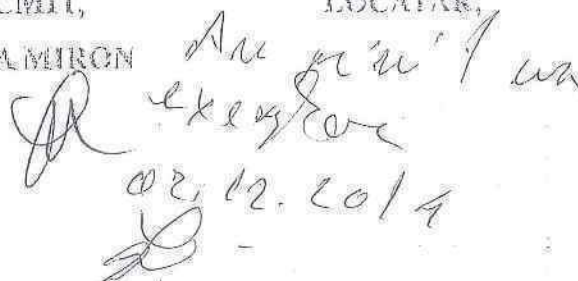 LOCATAR,
MIRON Am primit un
exemplar
02.12.2014